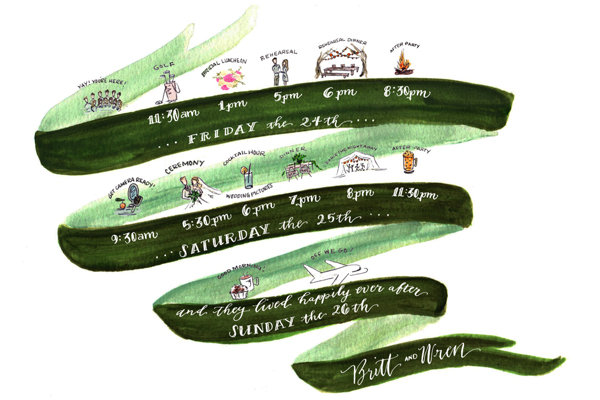 YAY! YOU'RE HERE!
GOLF
SPECIAL LUNCHEON
REHEARSAL
REHEARSAL DINNER
AFTER PARTY
11:30am 1pm 5pm 6pm 8:30pm
... FRIDAY the 24th ...
GET CAMERA READY!
CEREMONY
COCKTAIL HOUR
WEDDING PICTURES
DINNER
DANCE THE NIGHT AWAY
AFTER PARTY
9:30am 5:30pm 6pm 7pm 8pm 11:30pm
... SATURDAY the 25th ...
GOOD MORNING!
OFF WE GO!
and they lived happily ever after
SUNDAY the 26th
Britt AND Wren